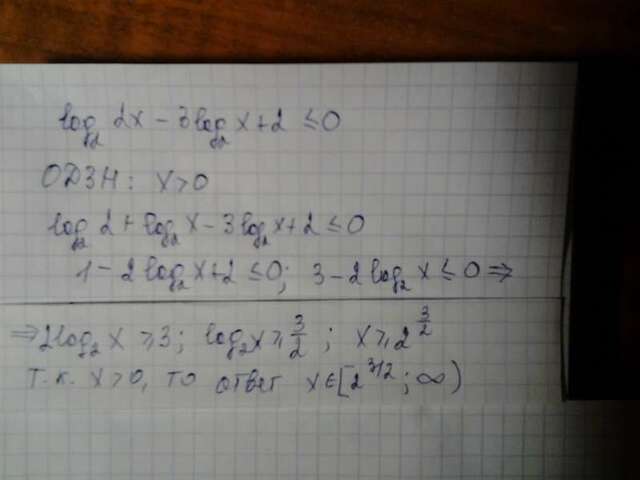 log₂ 2x - 3log₂ x + 2 ≤ 0
ОДЗН: x > 0
log₂ 2 + log₂ x - 3log₂ x + 2 ≤ 0
1 - 2log₂ x + 2 ≤ 0; 3 - 2log₂ x ≤ 0 ⇒
⇒ 2log₂ x ⩾ 3; log₂ x ⩾ 3/2; x ⩾ 2^(3/2)
т.к. x > 0, то ответ x ∈ [2^(3/2); ∞)